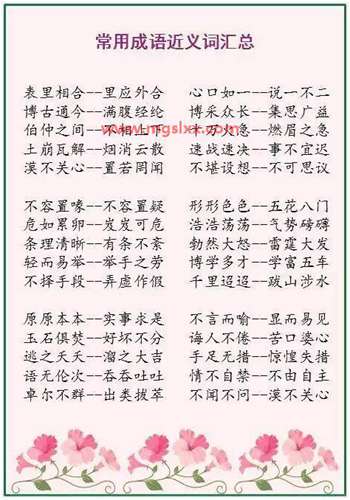 常用成语近义词汇总
表里相合——里应外合 心口如一——说一不二
博古通今——满腹经纶 博采众长——集思广益
伯仲之间——不相上下 十万火急——燃眉之急
土崩瓦解——烟消云散 速战速决——事不宜迟
漠不关心——置若罔闻 不堪设想——不可思议
不容置喙——不容置疑 形形色色——五花八门
危如累卵——岌岌可危 浩浩荡荡——气势磅礴
条理清晰——有条不紊 勃然大怒——雷霆大发
轻而易举——举手之劳 博学多才——学富五车
不择手段——弄虚作假 千里迢迢——跋山涉水
原原本本——实事求是 不言而喻——显而易见
玉石俱焚——好坏不分 诲人不倦——苦口婆心
逃之夭夭——溜之大吉 手足无措——惊惶失措
语无伦次——吞吞吐吐 情不自禁——不由自主
卓尔不群——出类拔萃 不闻不问——漠不关心